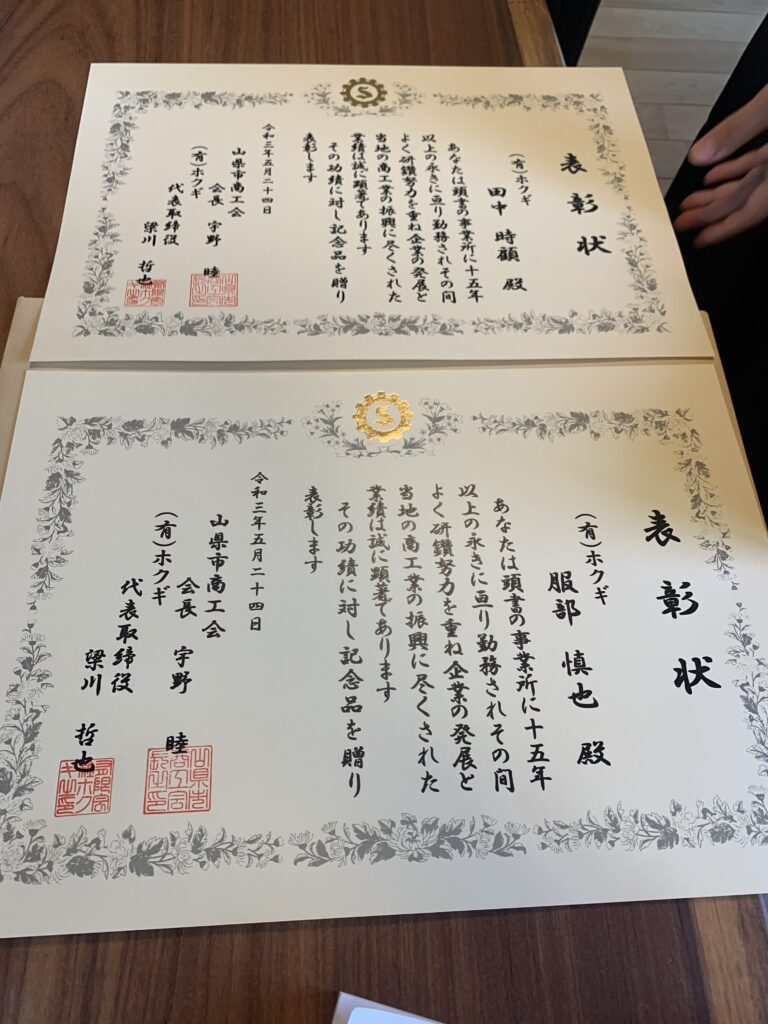 表彰状
(有)ホクギ
田中 時顧 殿
あなたは頭書の事業所に十五年
以上の永きに亘り勤務されその間
よく研鑽努力を重ね企業の発展と
当地の商工業の振興に尽くされた
業績は誠に顕著であります
その功績に対し記念品を贈り
表彰します
令和三年五月二十四日
山県市商工会
会長 宇野 睦
(有)ホクギ
代表取締役
梁川 哲也
表彰状
(有)ホクギ
服部 慎也 殿
あなたは頭書の事業所に十五年
以上の永きに亘り勤務されその間
よく研鑽努力を重ね企業の発展と
当地の商工業の振興に尽くされた
業績は誠に顕著であります
その功績に対し記念品を贈り
表彰します
令和三年五月二十四日
山県市商工会
会長 宇野 睦
(有)ホクギ
代表取締役
梁川 哲也